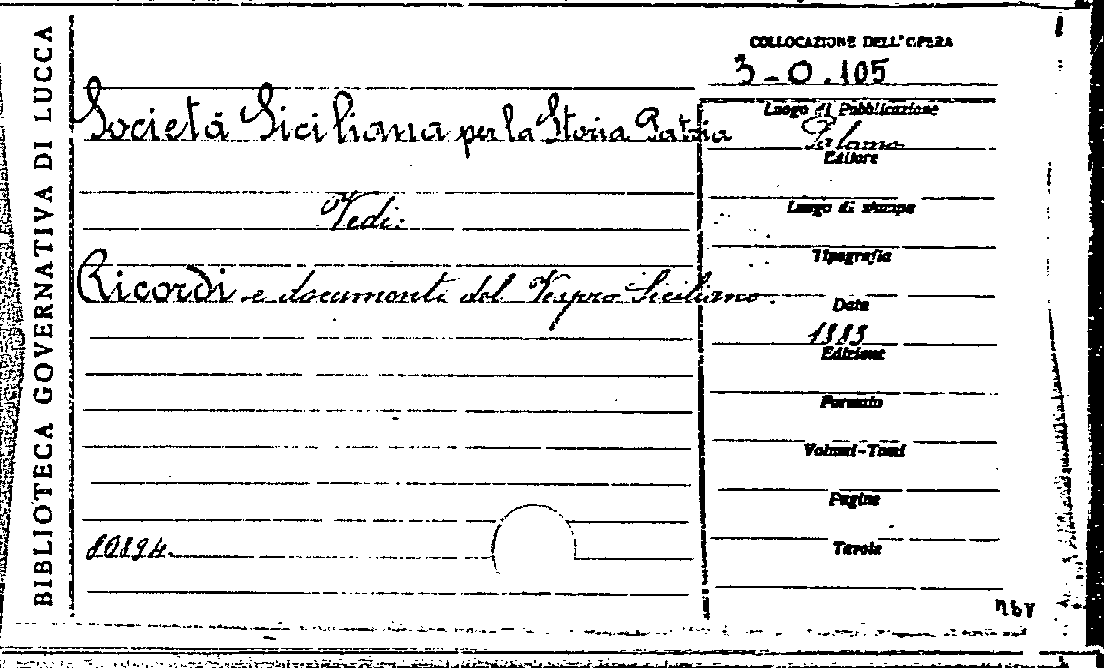 BIBLIOTECA GOVERNATIVA DI LUCCA
COLLOCAZIONE DELL'OPERA
3-0.105
Società Siciliana per la Storia Patria
Vedi:
Ricordi e documenti del Vespro Siciliano.
80894
Luogo di Pubblicazione
Editore
Luogo di stampa
Tipografia
Data
Edizione
Formato
Volumi-Tomi
Pagine
Tavole